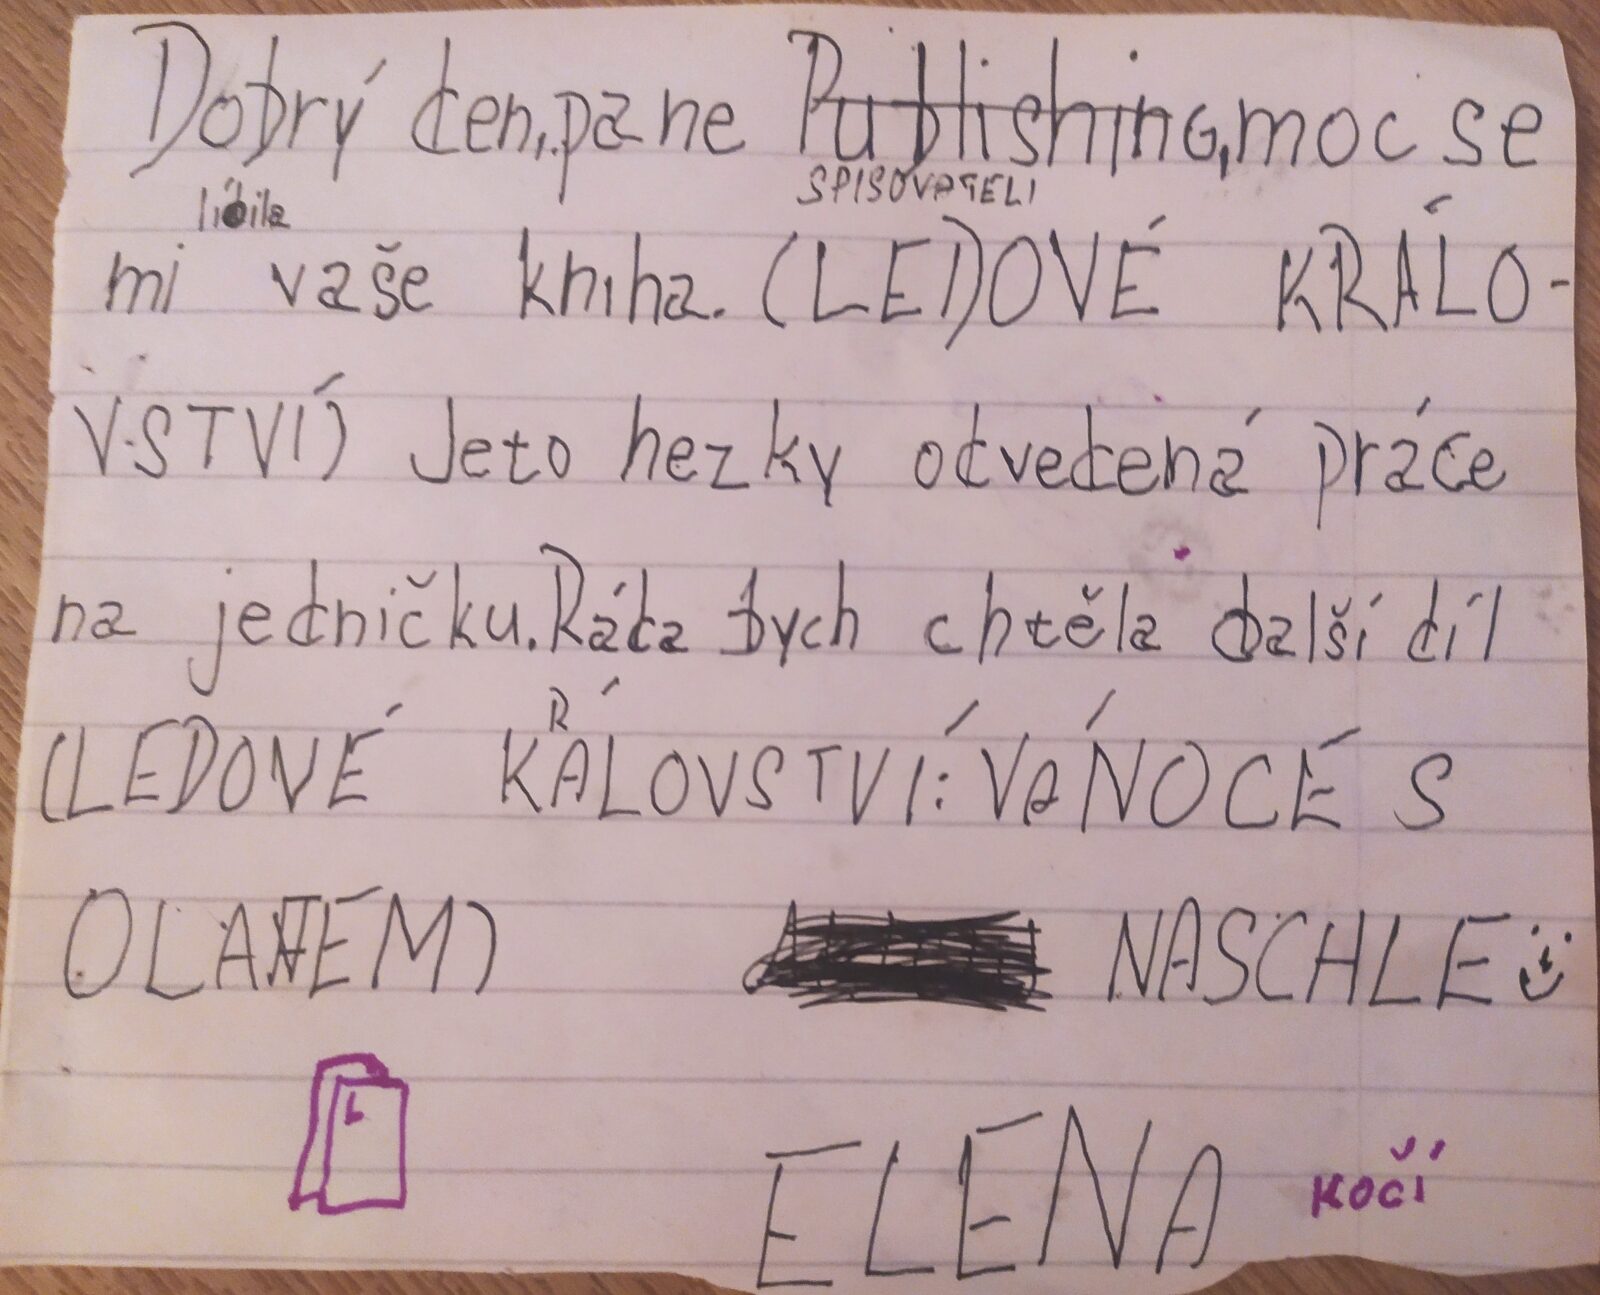 Dobrý den, pane Publishing, moc se
SPISOVATELI
líbila
mi vaše kniha. (LEDOVÉ KRÁLO-
VSTVÍ) Jeto hezky odvedená práce
na jedničku. Ráda bych chtěla další díl
(LEDOVÉ KRÁLOVSTVÍ: VÁNOCÉ S
OLAFEM) NASCHLE
L
ELENA KOČÍ